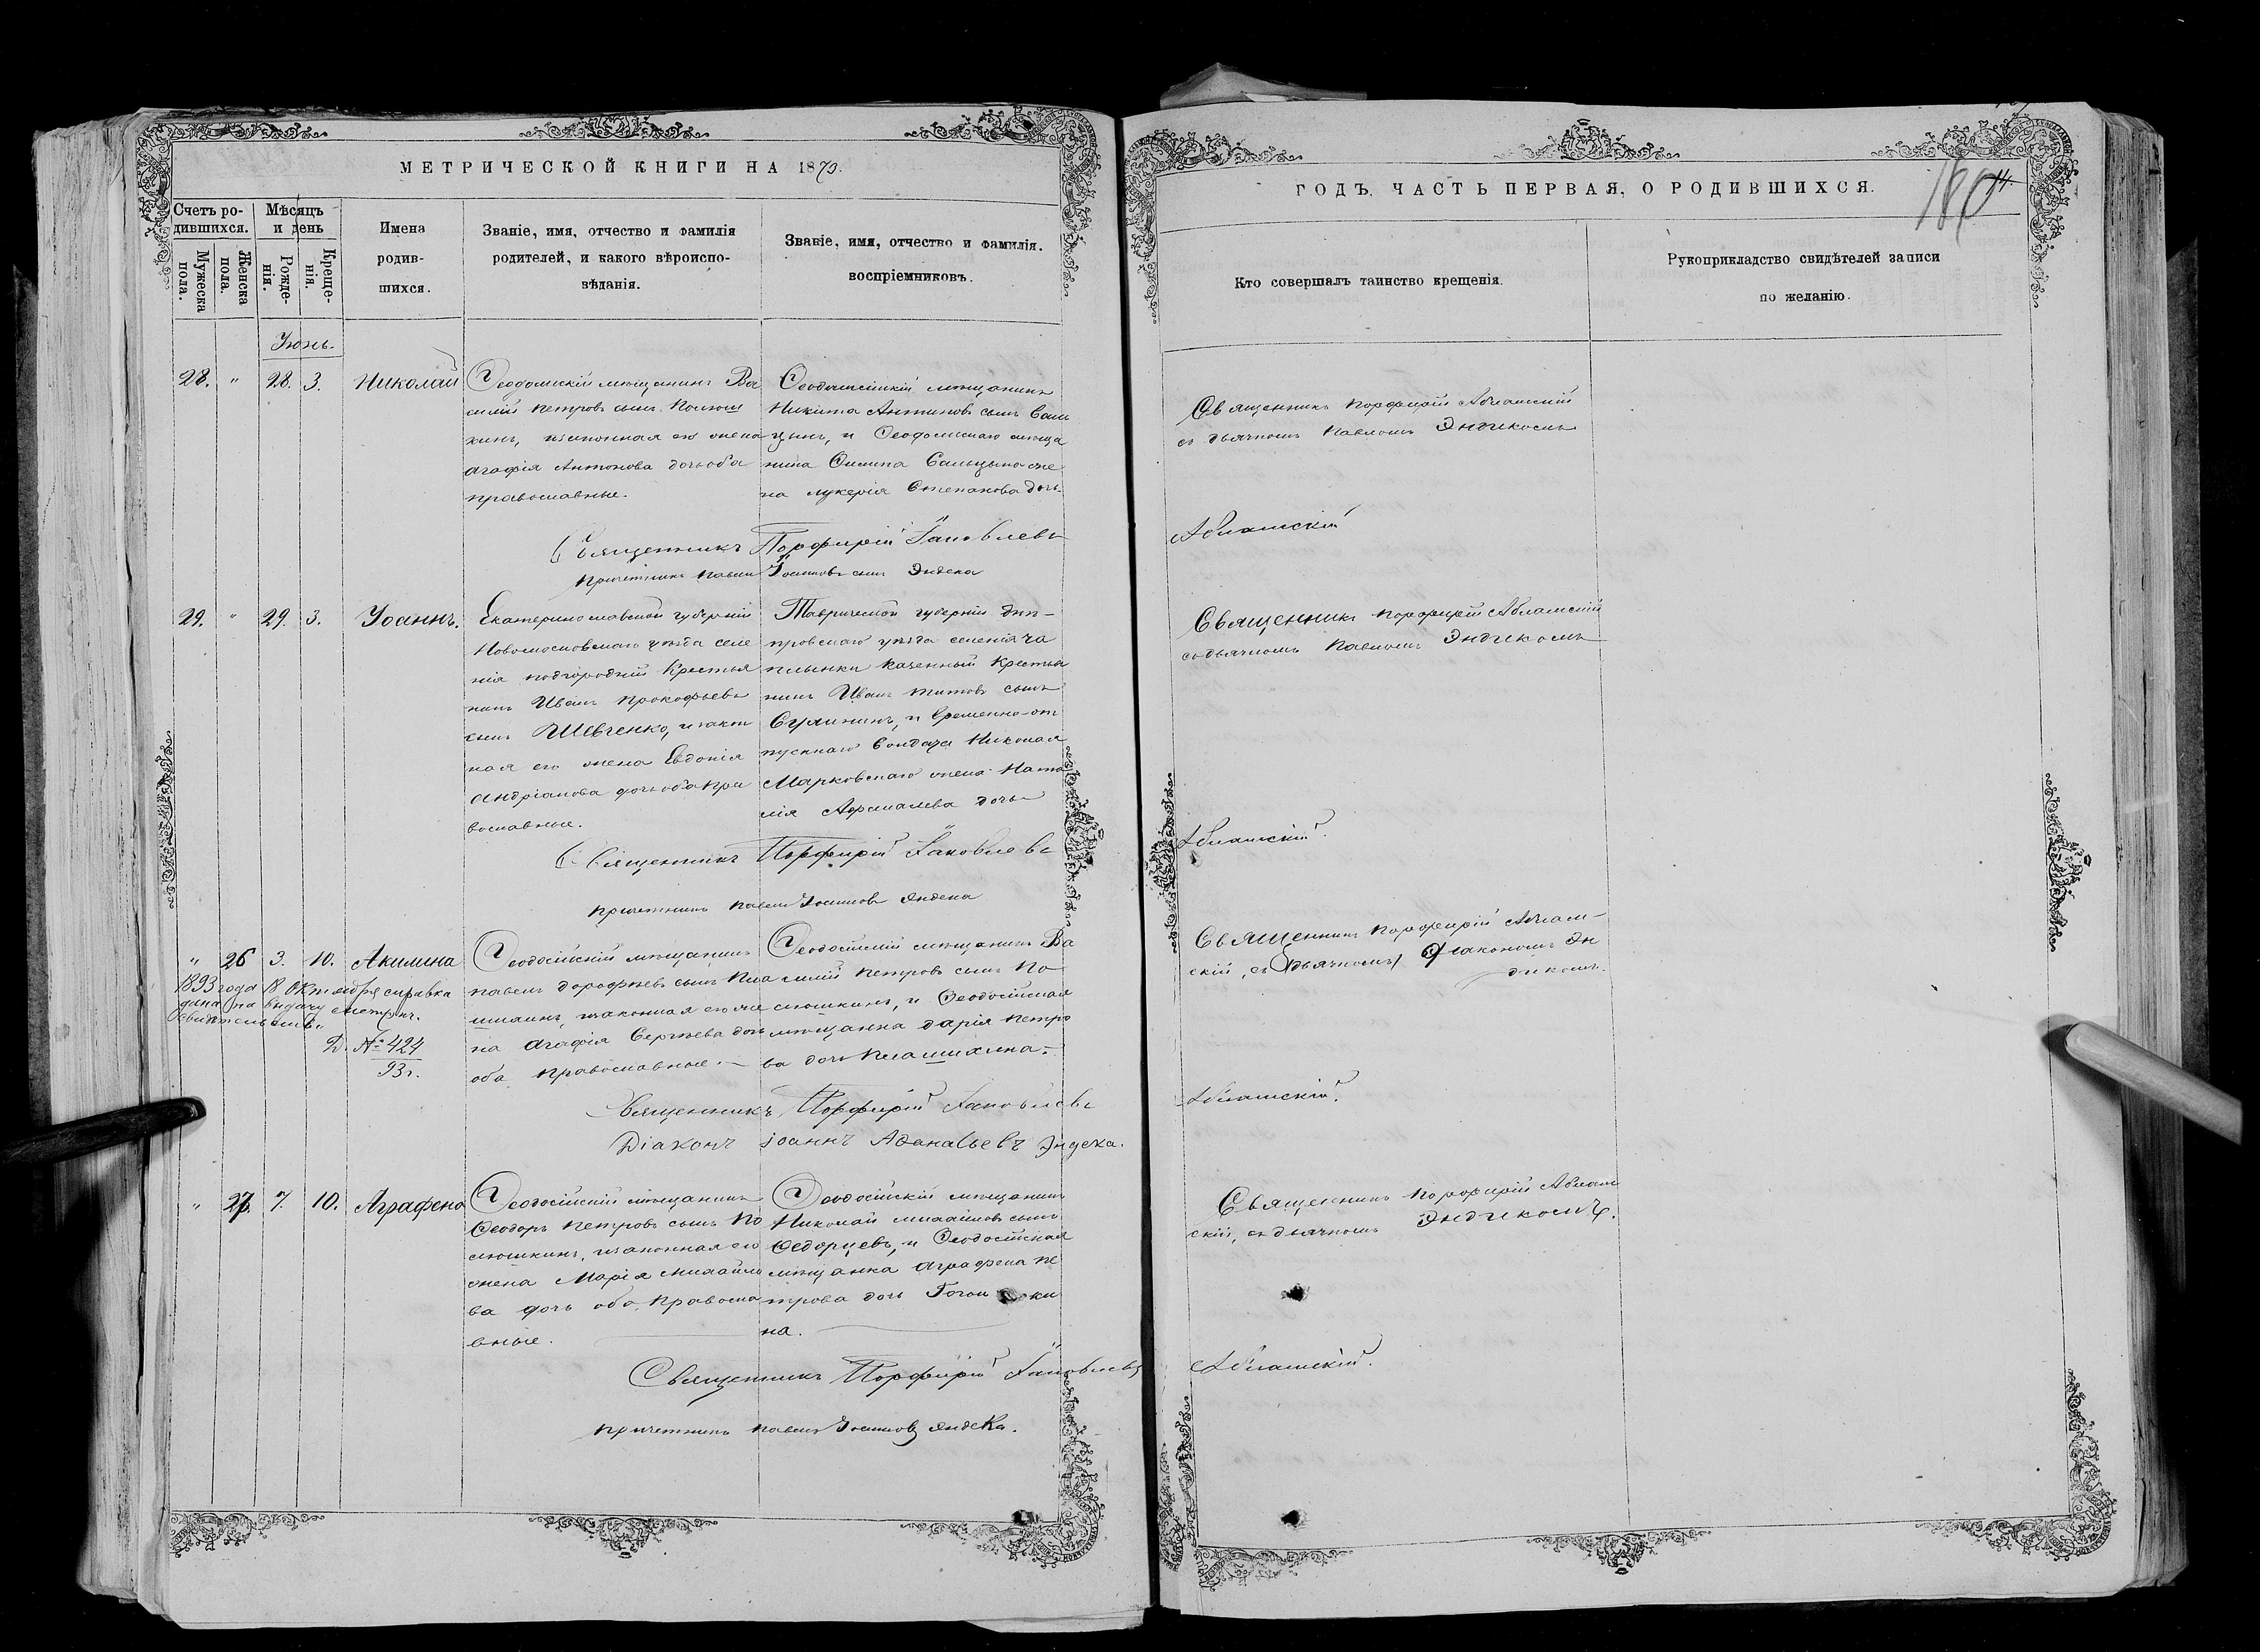 МЕТРИЧЕСКОЙ КНИГИ НА 1870.
Счетъ ро-
дившихся.
Мужеска
пола.
Женска
пола.
Мѣсяцъ
и день
Рожде-
нія.
Креще-
нія.
Имена
родив-
шихся.
Званіе, имя, отчество и фамилія
родителей, и какого вѣроиспо-
вѣданія.
Званіе, имя, отчество и фамилія.
воспріемниковъ.
Іюнь.
28. " 28. 3. Николай
Ѳеодосійскій мѣщанинъ Ва
силій Петровъ сынъ
хинъ, и законная его жена
Агафія Антонова дочь оба
православные.
Ѳеодосійскій мѣщанинъ
Никита Антиповъ сынъ Саль
цынъ, и Ѳеодосійскаго мѣща
нина Сальцына же
на Лукерія Степанова дочь.
Священникъ Порфирій Іаковлевъ
Причетникъ Павелъ Іосифовъ сынъ Эндека
29. " 29. 3. Іоаннъ.
Екатеринославской губерніи
Новомосковскаго уѣзда селе
нія Подгородній Крестья
нинъ Иванъ Прокофьевъ
сынъ Шевченко, и закон
ная его жена Евдокія
Андріанова дочь оба пра
вославные.
Таврической губерніи Днѣ-
провскаго уѣзда селенія Ча
плынки Казенный Крестья
нинъ Иванъ Титовъ сынъ
Сулининъ, и временно-от
пускнаго солдата Николая
Марковскаго жена Ната
лія дочь
Священникъ Порфирій Іаковлевъ
Причетникъ Павелъ Іосифовъ Эндека
" 26 3. 10. Акилина
1893 года 18 Октября справка
дана на выдачу метрич.
свидѣтельствъ.
Д. № 424
93 г.
Ѳеодосійскій мѣщанинъ
Павелъ Дорофѣевъ сынъ Кла
шихинъ, и законная его же
на Агафія Сергѣева дочь
оба православные. —
Ѳеодосійскій мѣщанинъ Ва
силій Петровъ сынъ По
люшкинъ, и Ѳеодосійская
мѣщанка Дарія Петро
ва дочь Клашихина. —
Священникъ Порфирій Іаковлевъ
Діаконъ Іоаннъ Аѳанасьевъ Эндека.
" 27. 7. 10. Аграфена
Ѳеодосійскій мѣщанинъ
Ѳеодоръ Петровъ сынъ По
люшкинъ, и законная его
жена Марія Михайло
ва дочь оба Правосла
вные.
Ѳеодосійскій мѣщанинъ
Николай Михайловъ сынъ
Ѳедорцевъ, и Ѳеодосійская
мѣщанка Аграфена Пе
трова дочь
на.
Священникъ Порфирій Іаковлевъ
Причетникъ Павелъ Іосифовъ Эндека.
ГОДЪ. ЧАСТЬ ПЕРВАЯ, О РОДИВШИХСЯ.
14.
180
Кто совершалъ таинство крещенія.
Рукоприкладство свидѣтелей записи
по желанію.
Священникъ Порфирій Абламскій
съ дьячкомъ Павломъ Эндекомъ
Абламскій
Священникъ Порфирій Абламскій
съ дьячкомъ Павломъ Эндекомъ
Абламскій.
Священникъ Порфирій Аблам-
скій, съ (дьячкомъ) Діакономъ Эн
декомъ.
Абламскій.
Священникъ Порфирій Аблам
скій, съ дьячкомъ Эндекомъ.
Абламскій.